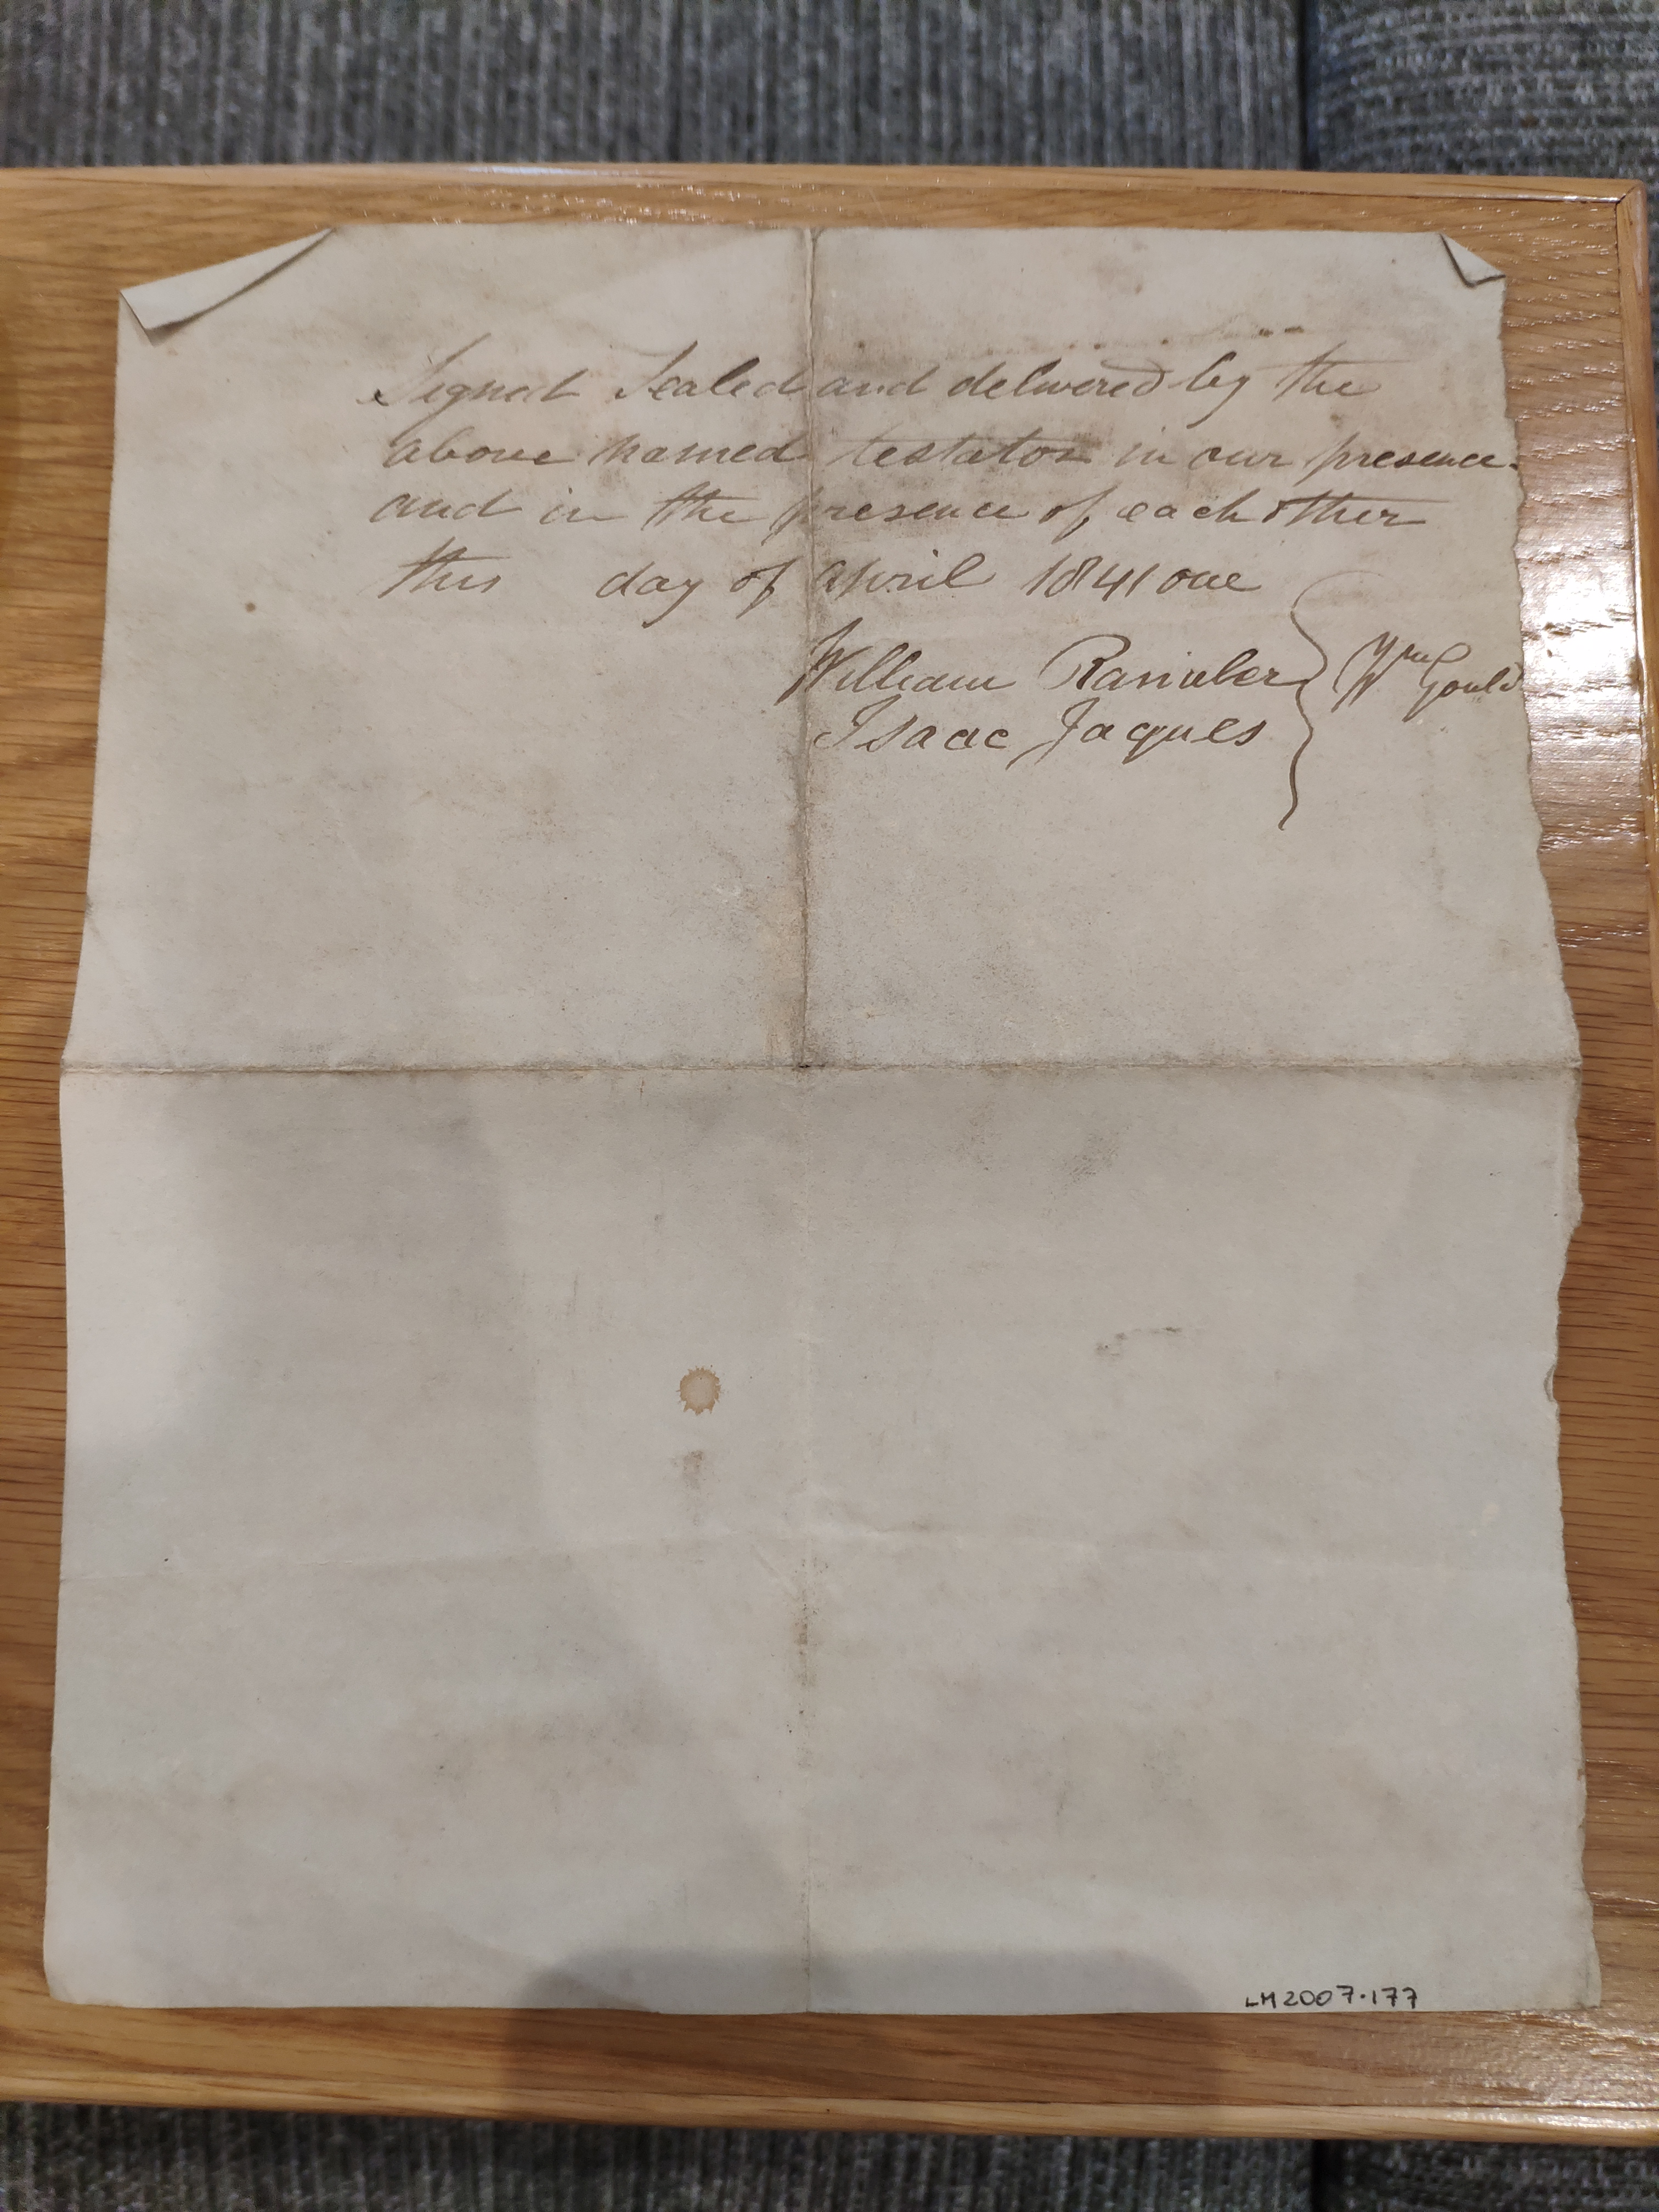 Signed Sealed and delivered by the
above named testator in our presence
and in the presence of each other
this day of april 1841 one
William
Isaac Jaques
Wm Gould
LM2007.177